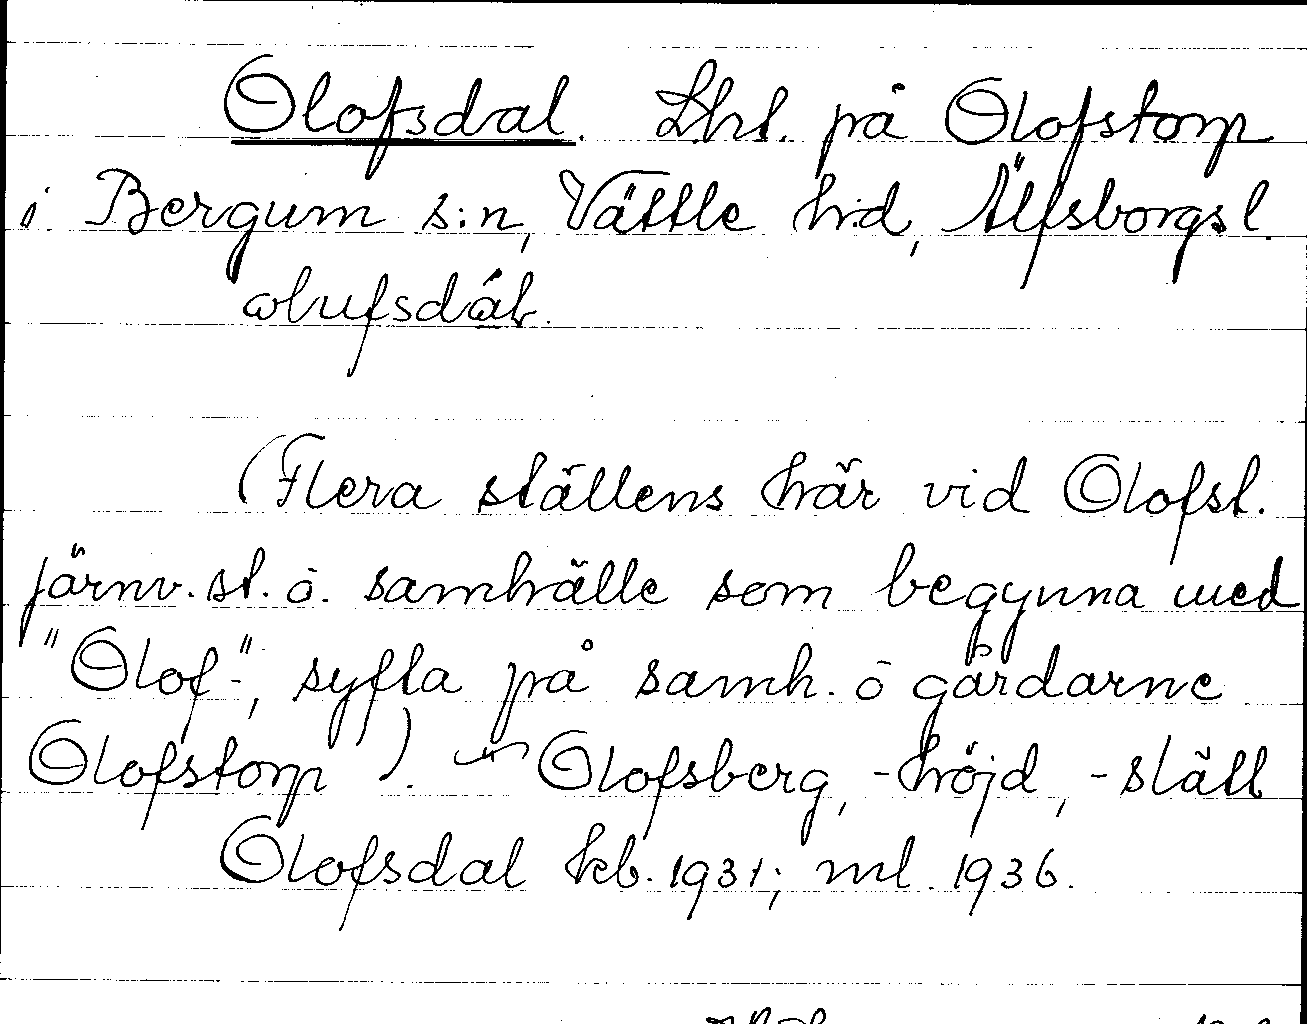 Olofsdal. Lht. på Olofstorp
i Bergum s:n, Vättle h:d, Älfsborgs l.
olufsdáł.
(Flera ställens här vid Olofst.
järnv. st. o. samhälle som begynna med
"Olof-", syfta på samh. o gårdarne
Olofstorp). Olofsberg, -höjd, -släll
Olofsdal kb. 1931; ml. 1936.